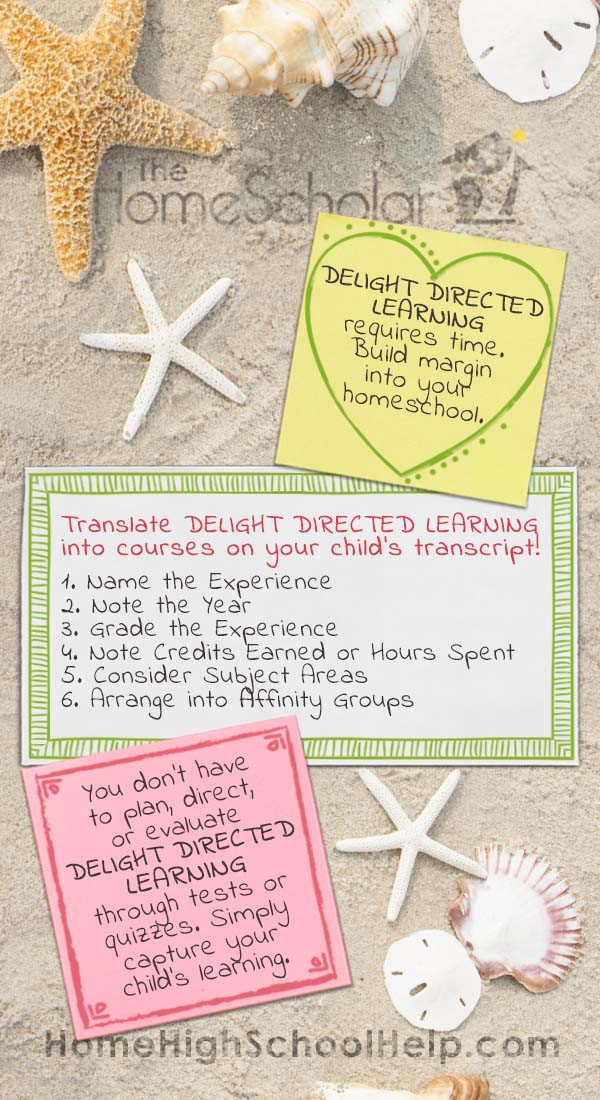 The
HomeScholar
DELIGHT DIRECTED
LEARNING
requires time.
Build margin
into your
homeschool.
Translate DELIGHT DIRECTED LEARNING
into courses on your child's transcript!
1. Name the Experience
2. Note the Year
3. Grade the Experience
4. Note Credits Earned or Hours Spent
5. Consider Subject Areas
6. Arrange into Affinity Groups
You don't have
to plan, direct,
or evaluate
DELIGHT DIRECTED
LEARNING
through tests or
quizzes. Simply
capture your
child's learning.
HomeHighSchoolHelp.com